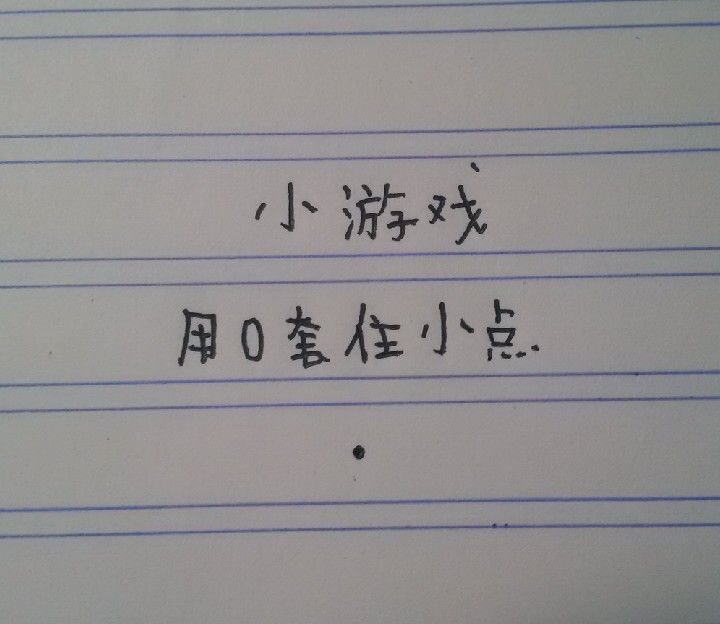 小游戏
用0套住小点